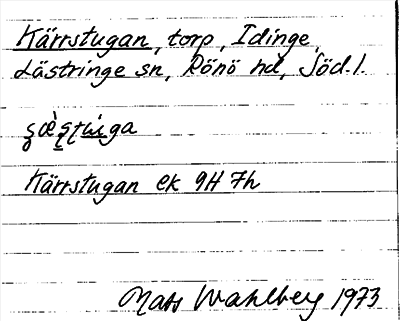 Kärrstugan, torp, Idinge,
Lästringe sn, Rönö hd, Söd.l.
Kärrstugan ek 9H 7h
Mats Wahlberg 1973